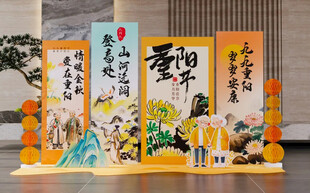 情暖金秋
爱在重阳
山河远阔
登高处
重阳
九九重阳
岁岁安康